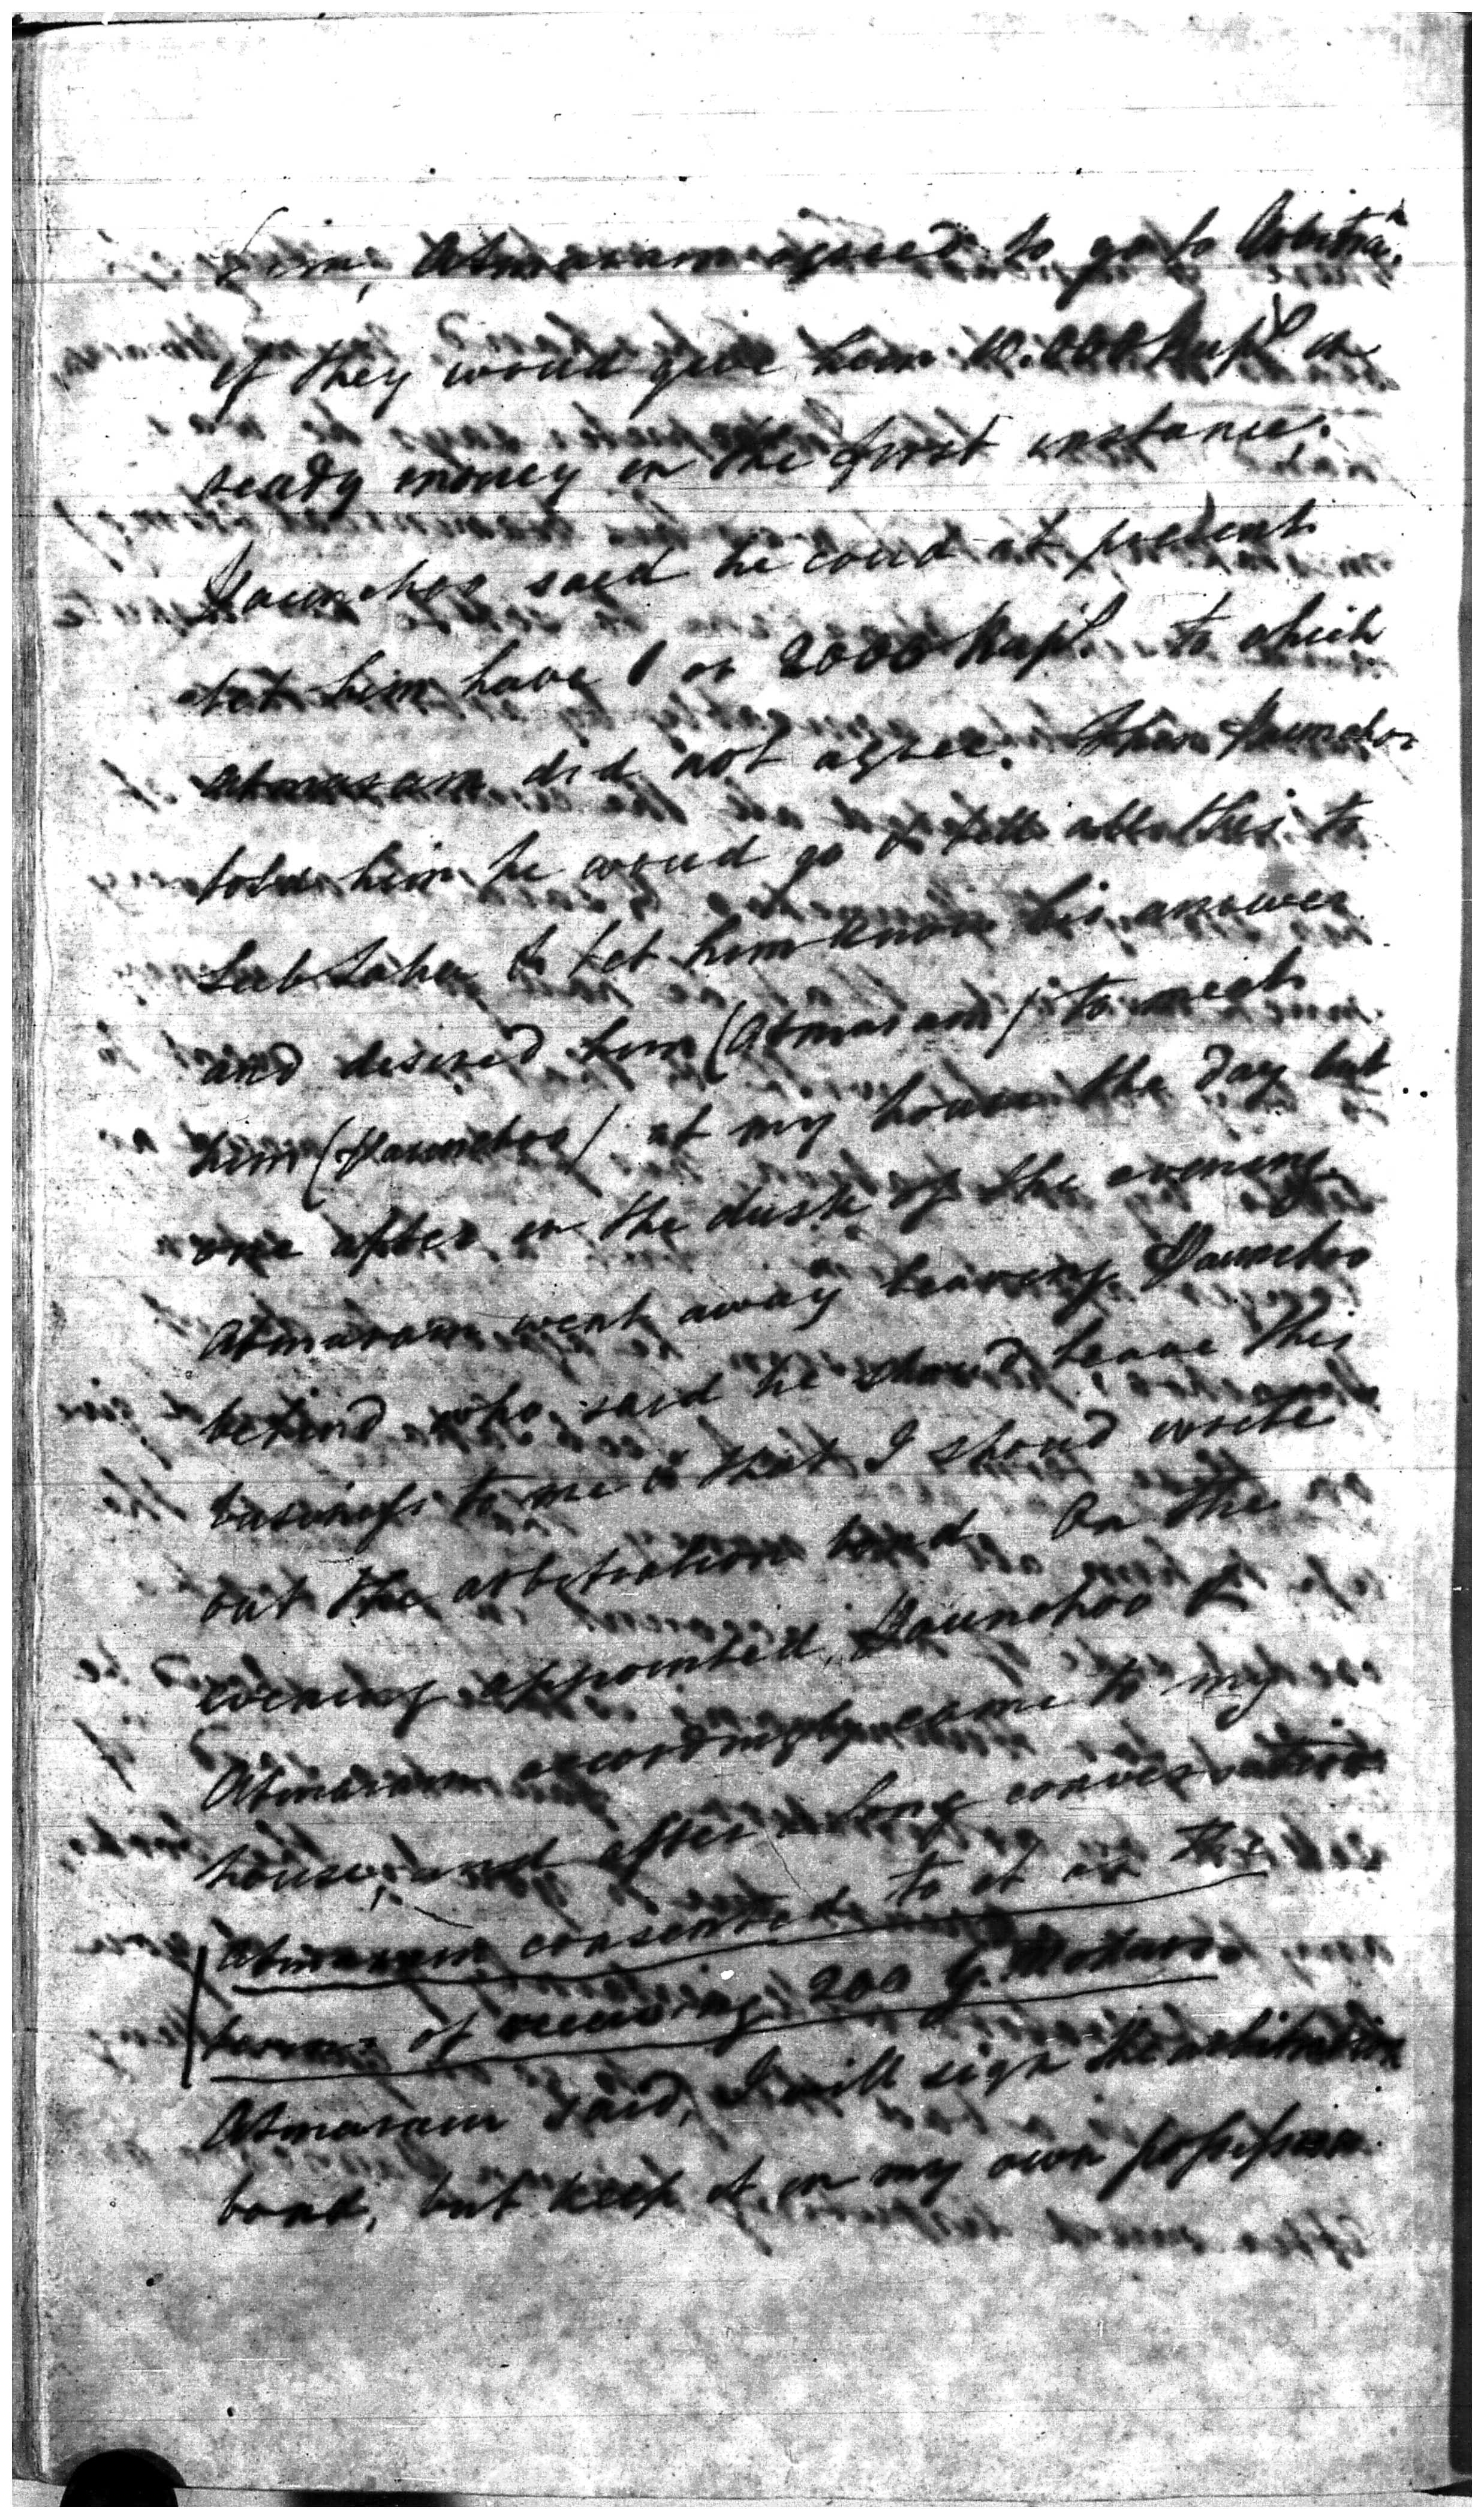 him, Atmaram agreed to go to Arbitra:n
if they would give him 10.000 Rup.s in
ready money in the first instance.
Paunchoo said he coud at present
let him have 1 or 2000 Rup.s to which
Atmaram did not agree. Then Paunchoo
told him he woud go & tell all this to
& let him know his answer
and desired him (Atmaram) to meet
him (Paunchoo) at my house the day but
one after in the dusk of the evening.
Atmaram went away leaving Paunchoo
behind who said he shoud leave this
business to me & that I shoud write
out the arbitration bond. On the
evening appointed, Paunchoo &
Atmaram accordingly came to my
house, and after a long conversation
Atmaram consented to it on the
terms of receiving 200 G. Mohurs.
Atmaram said, I will sign the arbitration
bond, but keep it in my own possession